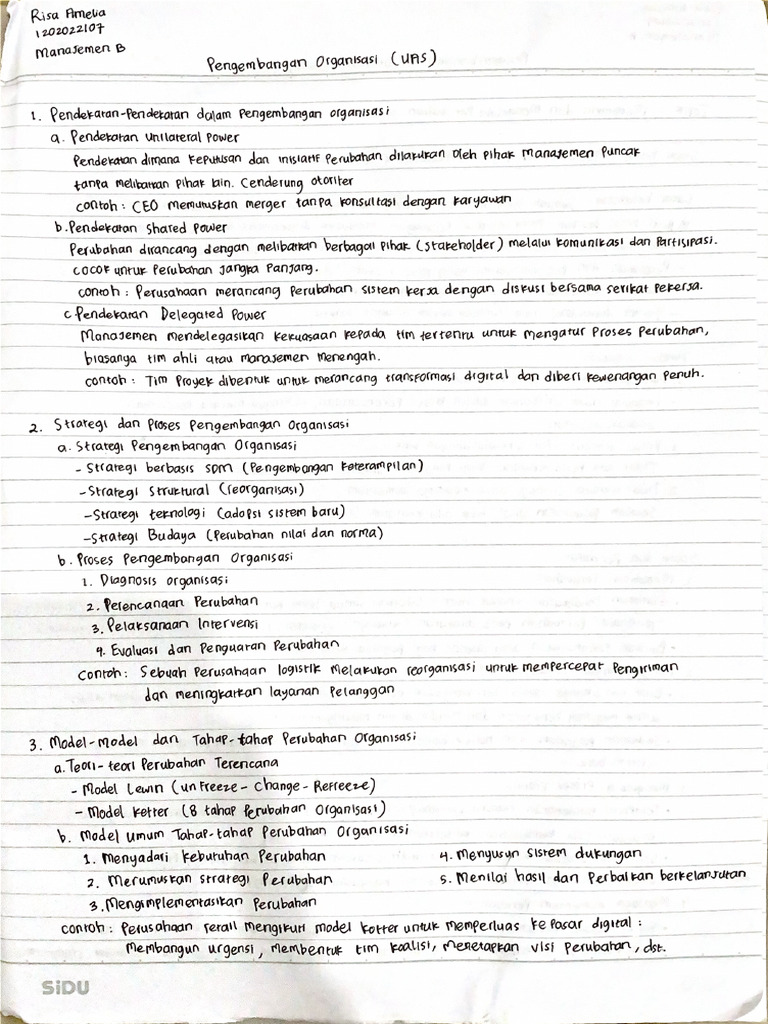 Risa Amelia
1202022107
Manajemen B
Pengembangan Organisasi (UAS)
1. Pendekatan-Pendekatan dalam Pengembangan organisasi
a. Pendekatan Unilateral Power
Pendekatan dimana keputusan dan inisiatif Perubahan dilakukan oleh pihak Manajemen Puncak
tanpa melibatkan pihak lain. Cenderung otoriter
contoh : CEO memutuskan merger tanpa konsultasi dengan karyawan
b. Pendekatan Shared Power
Perubahan dirancang dengan melibatkan berbagai pihak (stakeholder) melalui komunikasi dan Partisipasi.
cocok untuk Perubahan Jangka Panjang.
contoh : Perusahaan merancang Perubahan sistem kerja dengan diskusi bersama serikat Pekerja.
c. Pendekatan Delegated Power
Manajemen mendelegasikan kekuasaan kepada tim tertentu untuk mengatur Proses Perubahan,
biasanya tim ahli atau manajemen menengah.
contoh : Tim Proyek dibentuk untuk merancang transformasi digital dan diberi kewenangan Penuh.
2. Strategi dan Proses Pengembangan Organisasi
a. Strategi Pengembangan Organisasi
- Strategi berbasis SDM (Pengembangan keterampilan)
- Strategi Struktural (reorganisasi)
- Strategi teknologi (adopsi sistem baru)
- Strategi Budaya (Perubahan nilai dan norma)
b. Proses Pengembangan Organisasi
1. Diagnosis organisasi
2. Perencanaan Perubahan
3. Pelaksanaan Intervensi
4. Evaluasi dan Penguatan Perubahan
Contoh : Sebuah Perusahaan logistik melakukan reorganisasi untuk mempercepat Pengiriman
dan meningkatkan layanan Pelanggan
3. Model-model dan Tahap-tahap Perubahan Organisasi
a. Teori-teori Perubahan Terencana
- Model Lewin (unfreeze - Change - Refreeze)
- Model Kotter (8 tahap Perubahan Organisasi)
b. Model umum Tahap-tahap Perubahan Organisasi
1. Menyadari kebutuhan Perubahan
2. Merumuskan strategi Perubahan
3. Mengimplementasikan Perubahan
4. Menyusun sistem dukungan
5. Menilai hasil dan Perbaikan berkelanjutan
contoh : Perusahaan retail mengikuti model kotter untuk memperluas ke pasar digital :
Membangun urgensi, membentuk tim koalisi, menetapkan visi perubahan, dst.
SiDU